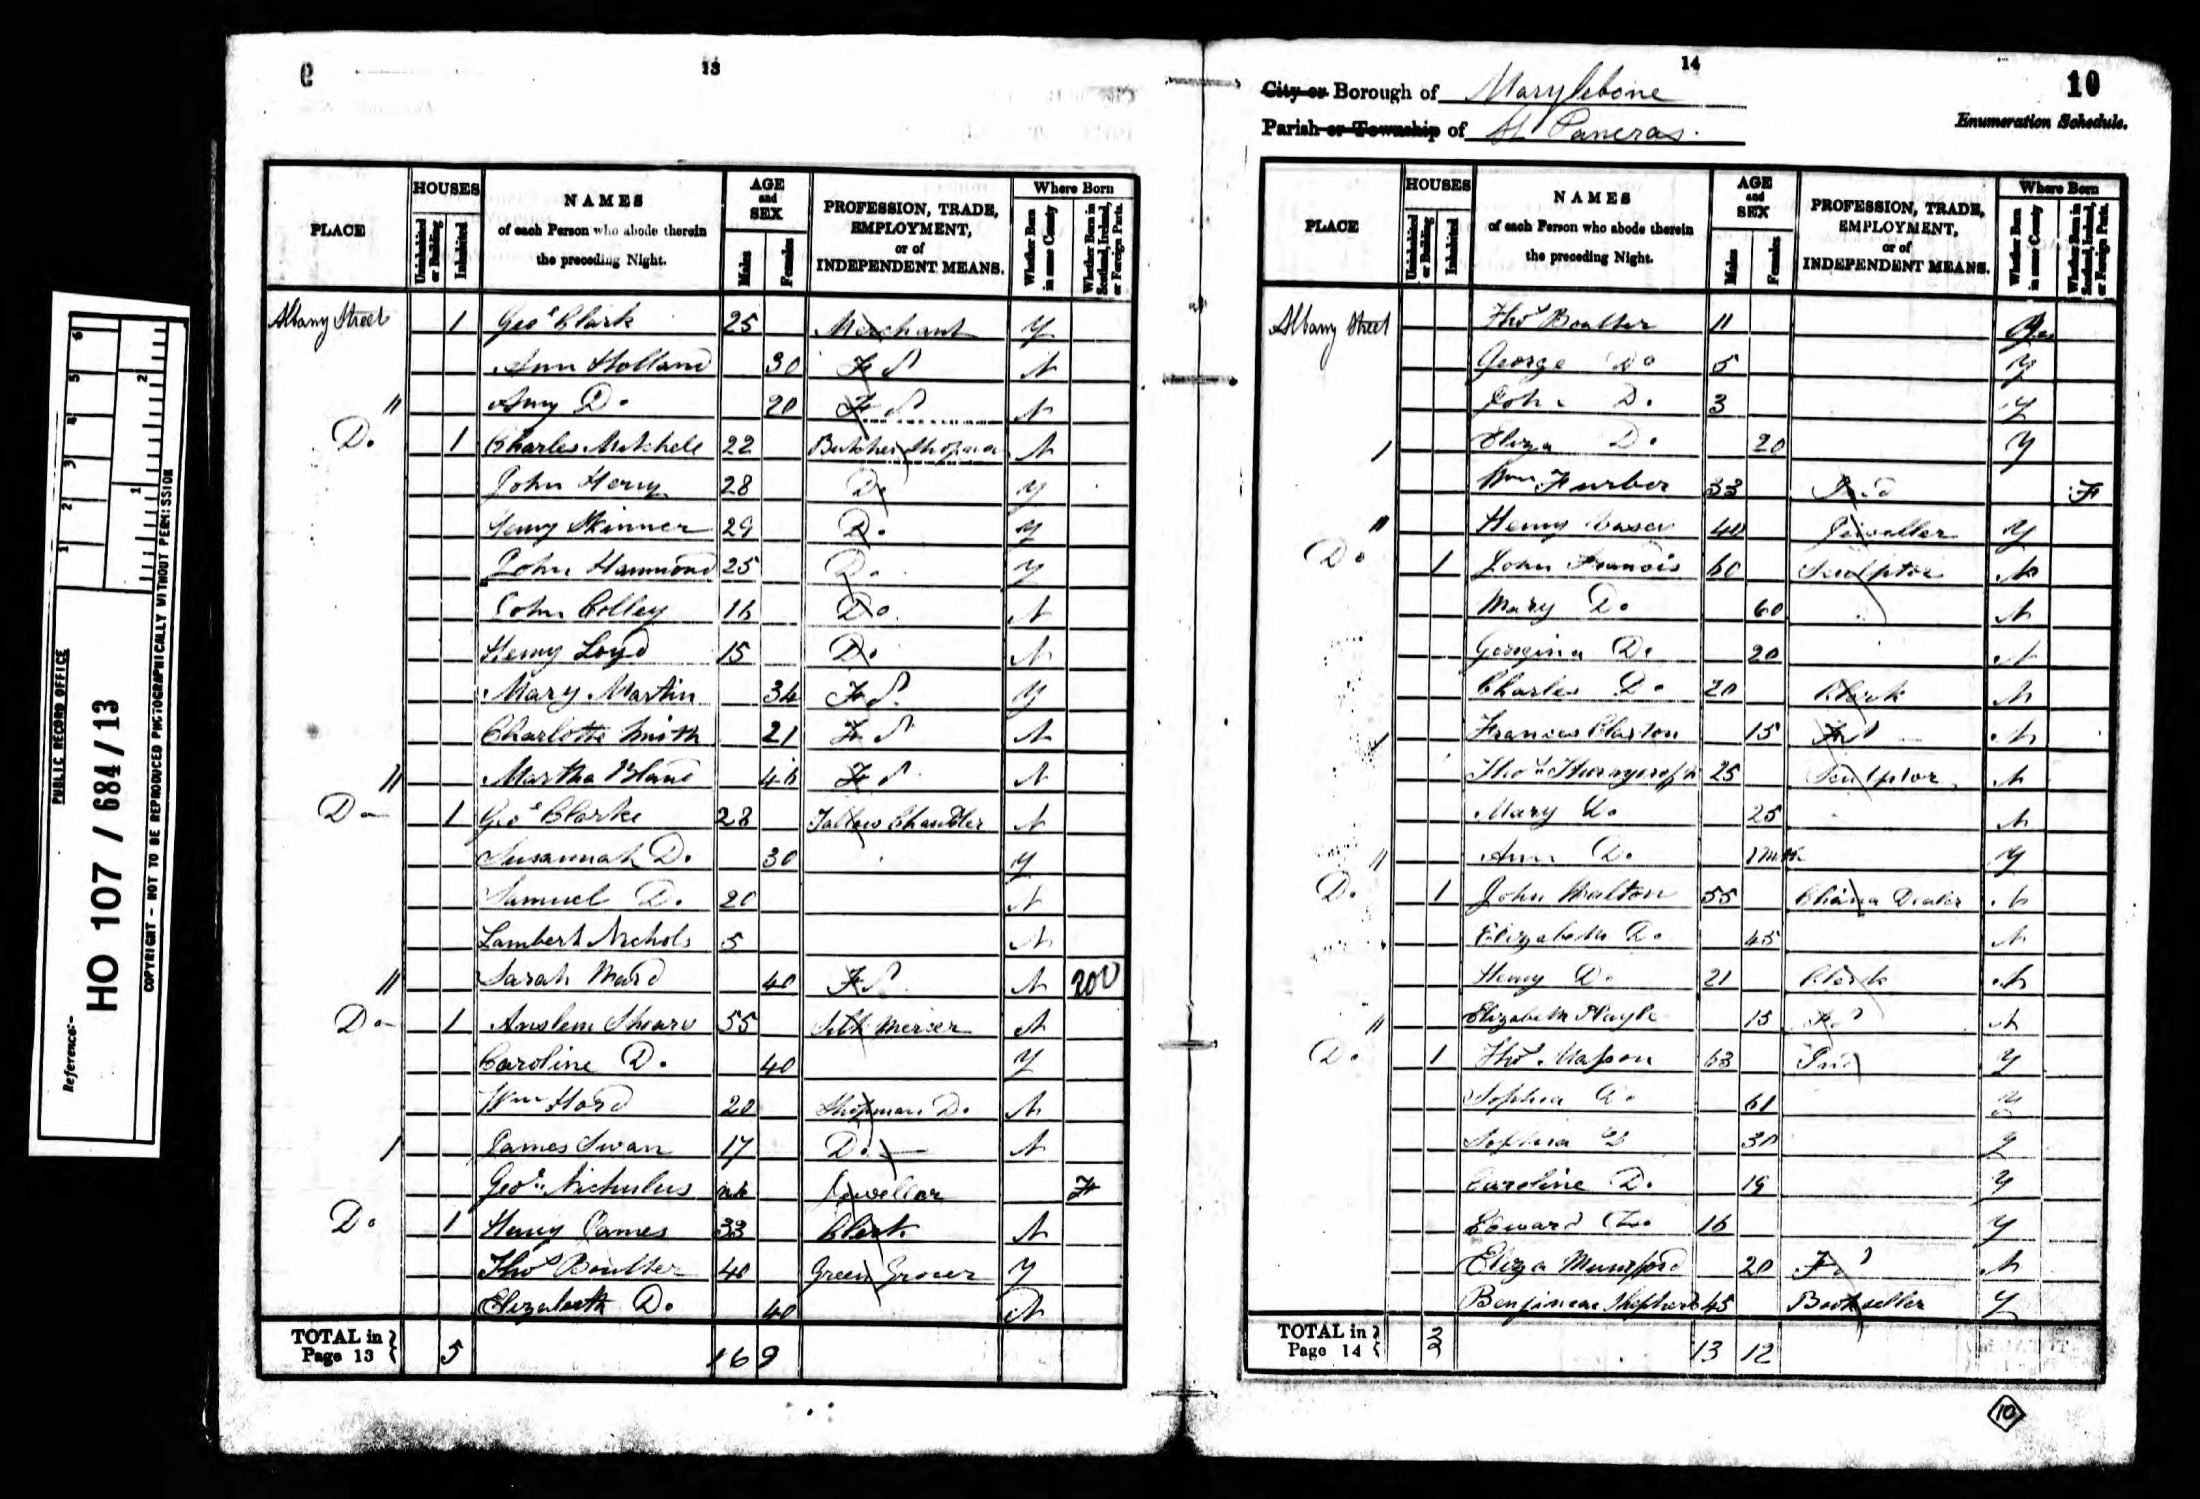 PUBLIC RECORD OFFICE
Reference:-
HO 107 / 684 / 13
COPYRIGHT - NOT TO BE REPRODUCED PHOTOGRAPHICALLY WITHOUT PERMISSION
1 2 3 4 5 6
1 2
13
PLACE
HOUSES
Uninhabited or Building
Inhabited
NAMES
of each Person who abode therein
the preceding Night.
AGE and SEX
Males
Females
PROFESSION, TRADE,
EMPLOYMENT,
or of
INDEPENDENT MEANS.
Where Born
Whether Born in same County
Whether Born in Scotland, Ireland, or Foreign Parts.
Albany Street 1 Geo Clark 25 Merchant Y
Ann Holland 30 F S N
Amy Do 20 F S N
Do 1 Charles Mitchell 22 Butcher Shopman N
John Henry 28 Do Y
Henry Skinner 29 Do Y
John Hammond 25 Do Y
John Colley 16 Do N
Henry Loyd 15 Do N
Mary Martin 34 F S Y
Charlotte Smith 21 F S N
Martha Bland 46 F S N
Do 1 Geo Clarke 28 Tallow Chandler N
Susannah Do 30 Y
Samuel Do 20 N
Lambert Nichols 5 N
Sarah Ward 40 F S N 200
Do 1 Anslem 55 Silk Mercer N
Caroline Do 40 Y
Wm 20 Shopman Do N
James Swan 17 Do N
Geo Nicholus Jewellor F
Do 1 Henry James 33 Clerk N
Thos Boulter 40 Green Grocer Y
Elizabeth Do 40 N
TOTAL in Page 13 5 16 9
14
10
City or Borough of Marylebone
Parish or Township of St Pancras.
Enumeration Schedule.
PLACE
HOUSES
Uninhabited or Building
Inhabited
NAMES
of each Person who abode therein
the preceding Night.
AGE and SEX
Males
Females
PROFESSION, TRADE,
EMPLOYMENT,
or of
INDEPENDENT MEANS.
Where Born
Whether Born in same County
Whether Born in Scotland, Ireland, or Foreign Parts.
Albany Street Thos Boulter 11 Yes
George Do 5 Y
John Do 3 Y
Eliza Do 20 Y
Wm Furber 33 Ind F
Henry 40 Jeweller Y
Do 1 John Francis 60 Sculptor N
Mary Do 60 N
Georgina Do 20 N
Charles Do 20 Clerk N
Frances 15 F S N
Thos 25 Sculptor N
Mary Do 25 N
Ann Do 1 Mth Y
Do 1 John Walton 55 China Dealer N
Elizabeth Do 45 N
Henry Do 21 Clerk N
Elizabeth 15 F S N
Do 1 Thos 63 Ind Y
Sophia Do 61 Y
Sophia Do 30 Y
Caroline Do 19 Y
Edward Do 16 Y
Eliza Mumford 20 F S N
Benjamin Shepherd 45 Bookseller Y
TOTAL in Page 14 3 13 12
10